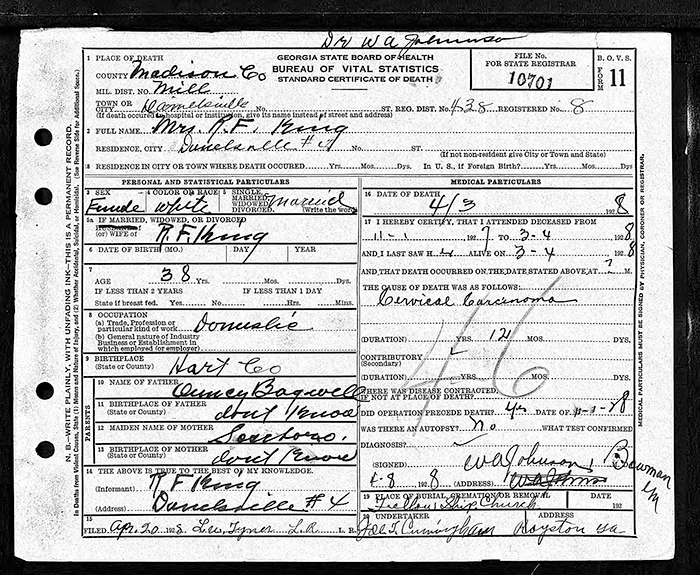 Dr W A Johnson
GEORGIA STATE BOARD OF HEALTH
BUREAU OF VITAL STATISTICS
STANDARD CERTIFICATE OF DEATH
FILE No.
FOR STATE REGISTRAR
10701
B. O. V. S.
FORM 11
1 PLACE OF DEATH
COUNTY Madison Co
MIL. DIST. NO. Mill
TOWN OR
CITY Danielsville No. ST. REG. DIST. No. 438 REGISTERED No. 8
(If death occurred in hospital or institution, give its name instead of street and address)
2 FULL NAME Mrs. R. F. King
RESIDENCE, CITY Danielsville #4 No. ST.
(If not non-resident give City or Town and State)
RESIDENCE IN CITY OR TOWN WHERE DEATH OCCURRED. Yrs. Mos. Dys. In U. S., if Foreign Birth? Yrs. Mos. Dys.
PERSONAL AND STATISTICAL PARTICULARS
3 SEX 4 COLOR OR RACE 5 SINGLE, MARRIED, WIDOWED, DIVORCED. Married
Female White (Write the word)
5a IF MARRIED, WIDOWED, OR DIVORCED
HUSBAND of
(or) WIFE of R. F. King
6 DATE OF BIRTH (MO.) DAY YEAR
7 AGE 38 Yrs. Mos. Dys.
IF LESS THAN 2 YEARS IF LESS THAN 1 DAY
State if breast fed. Yes No Hrs. Mins.
8 OCCUPATION
(a) Trade, Profession or
particular kind of work Domestic
(b) General nature of Industry
Business or Establishment in
which employed (or employer)
9 BIRTHPLACE
(State or County) Hart Co
PARENTS
10 NAME OF FATHER Bagwell
11 BIRTHPLACE OF FATHER
(State or County) dont Know
12 MAIDEN NAME OF MOTHER
13 BIRTHPLACE OF MOTHER
(State or County) dont Know
14 THE ABOVE IS TRUE TO THE BEST OF MY KNOWLEDGE.
(Informant) R F King
(Address) Danielsville #4
15 FILED Apr. 20 1928 L. R.
MEDICAL PARTICULARS
16 DATE OF DEATH
4/3 1928
17 I HEREBY CERTIFY, THAT I ATTENDED DECEASED FROM
11-1 1927 TO 3-4 1928
AND I LAST SAW H ALIVE ON 3-4 1928
AND THAT DEATH OCCURRED ON THE DATE STATED ABOVE AT ? M.
THE CAUSE OF DEATH WAS AS FOLLOWS:
Cervical Carcinoma
46
(DURATION) YRS. 12 MOS. DYS.
CONTRIBUTORY
(Secondary)
(DURATION) YRS. MOS DYS.
WHERE WAS DISEASE CONTRACTED,
IF NOT AT PLACE OF DEATH?
DID OPERATION PRECEDE DEATH? yes DATE OF
WAS THERE AN AUTOPSY? No WHAT TEST CONFIRMED
DIAGNOSIS?
(SIGNED) W A Johnson
4-8 1928 (ADDRESS) Bowman Ga
19 PLACE OF BURIAL, CREMATION OR REMOVAL DATE
Fellowship Church 192
20 ADDRESS
Cunningham Royston Ga
N. B.—WRITE PLAINLY, WITH UNFADING INK—THIS IS A PERMANENT RECORD.
MEDICAL PARTICULARS MUST BE SIGNED BY PHYSICIAN, CORONER OR REGISTRAR.